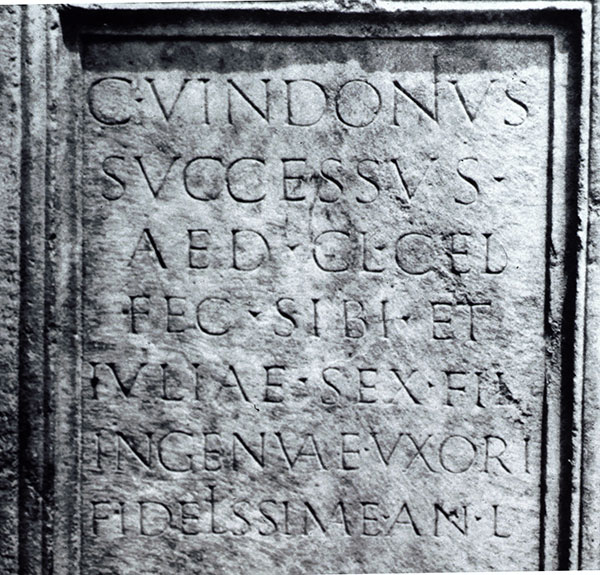 C·VINDONVS
SVCCESSVS·
AED·CL·CEL
·FEC·SIBI·ET
IVLIAE·SEX·FIL
INGENVAE·VXORI
FIDELSSIME·AN·L